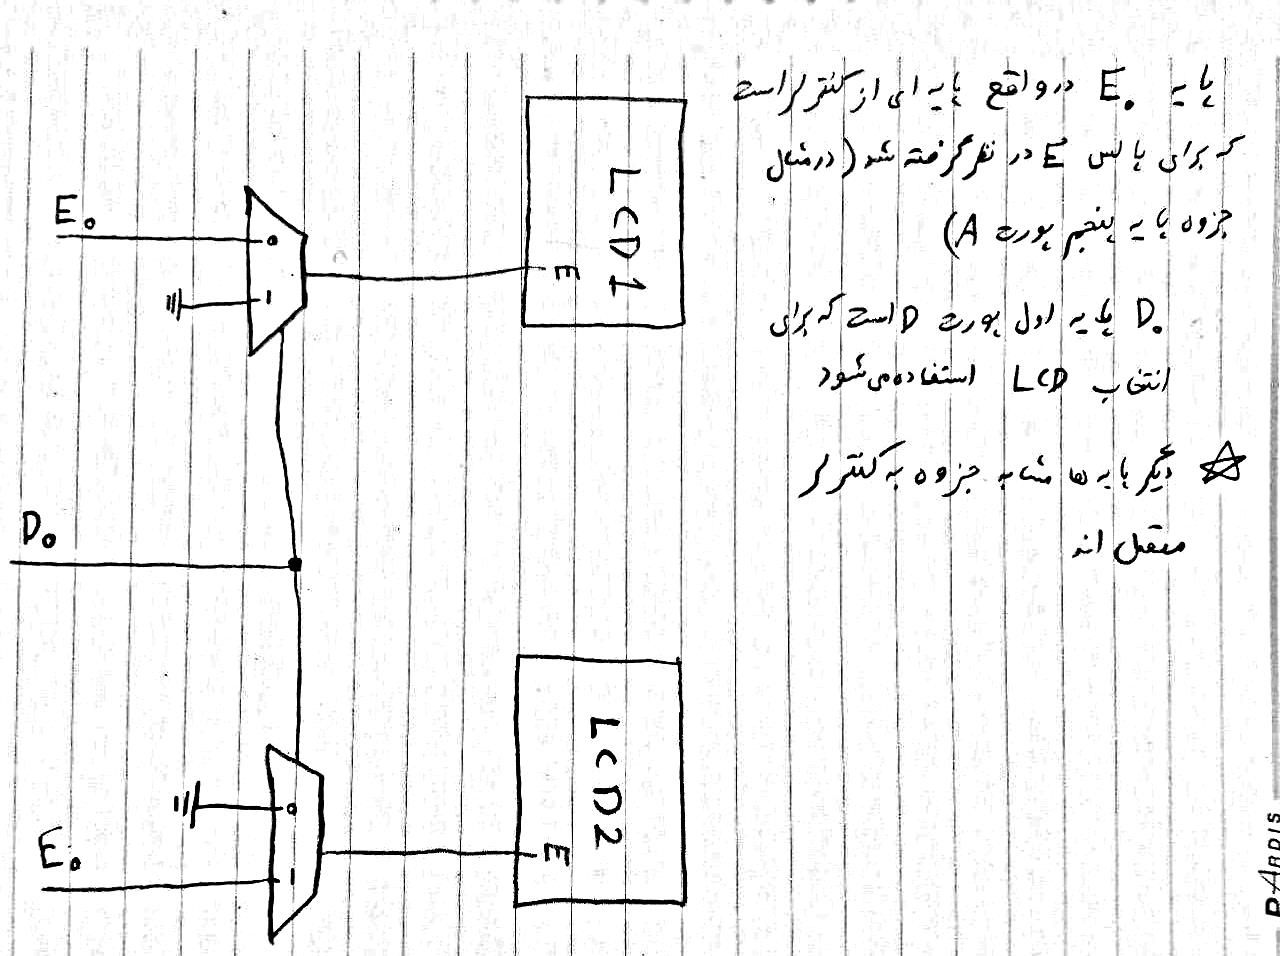 پایه E₀ در واقع پایه ای از کنترلر است
که برای پالس E در نظر گرفته شد (در مثال
جزوه پایه پنجم پورت A)
D₀ پایه اول پورت D است که برای
انتخاب LCD استفاده می‌شود
☆ دیگر پایه ها مشابه جزوه به کنترلر
متصل اند
LCD1
E₀
0
1
E
D₀
LCD2
0
E₀
1
E
PARDIS